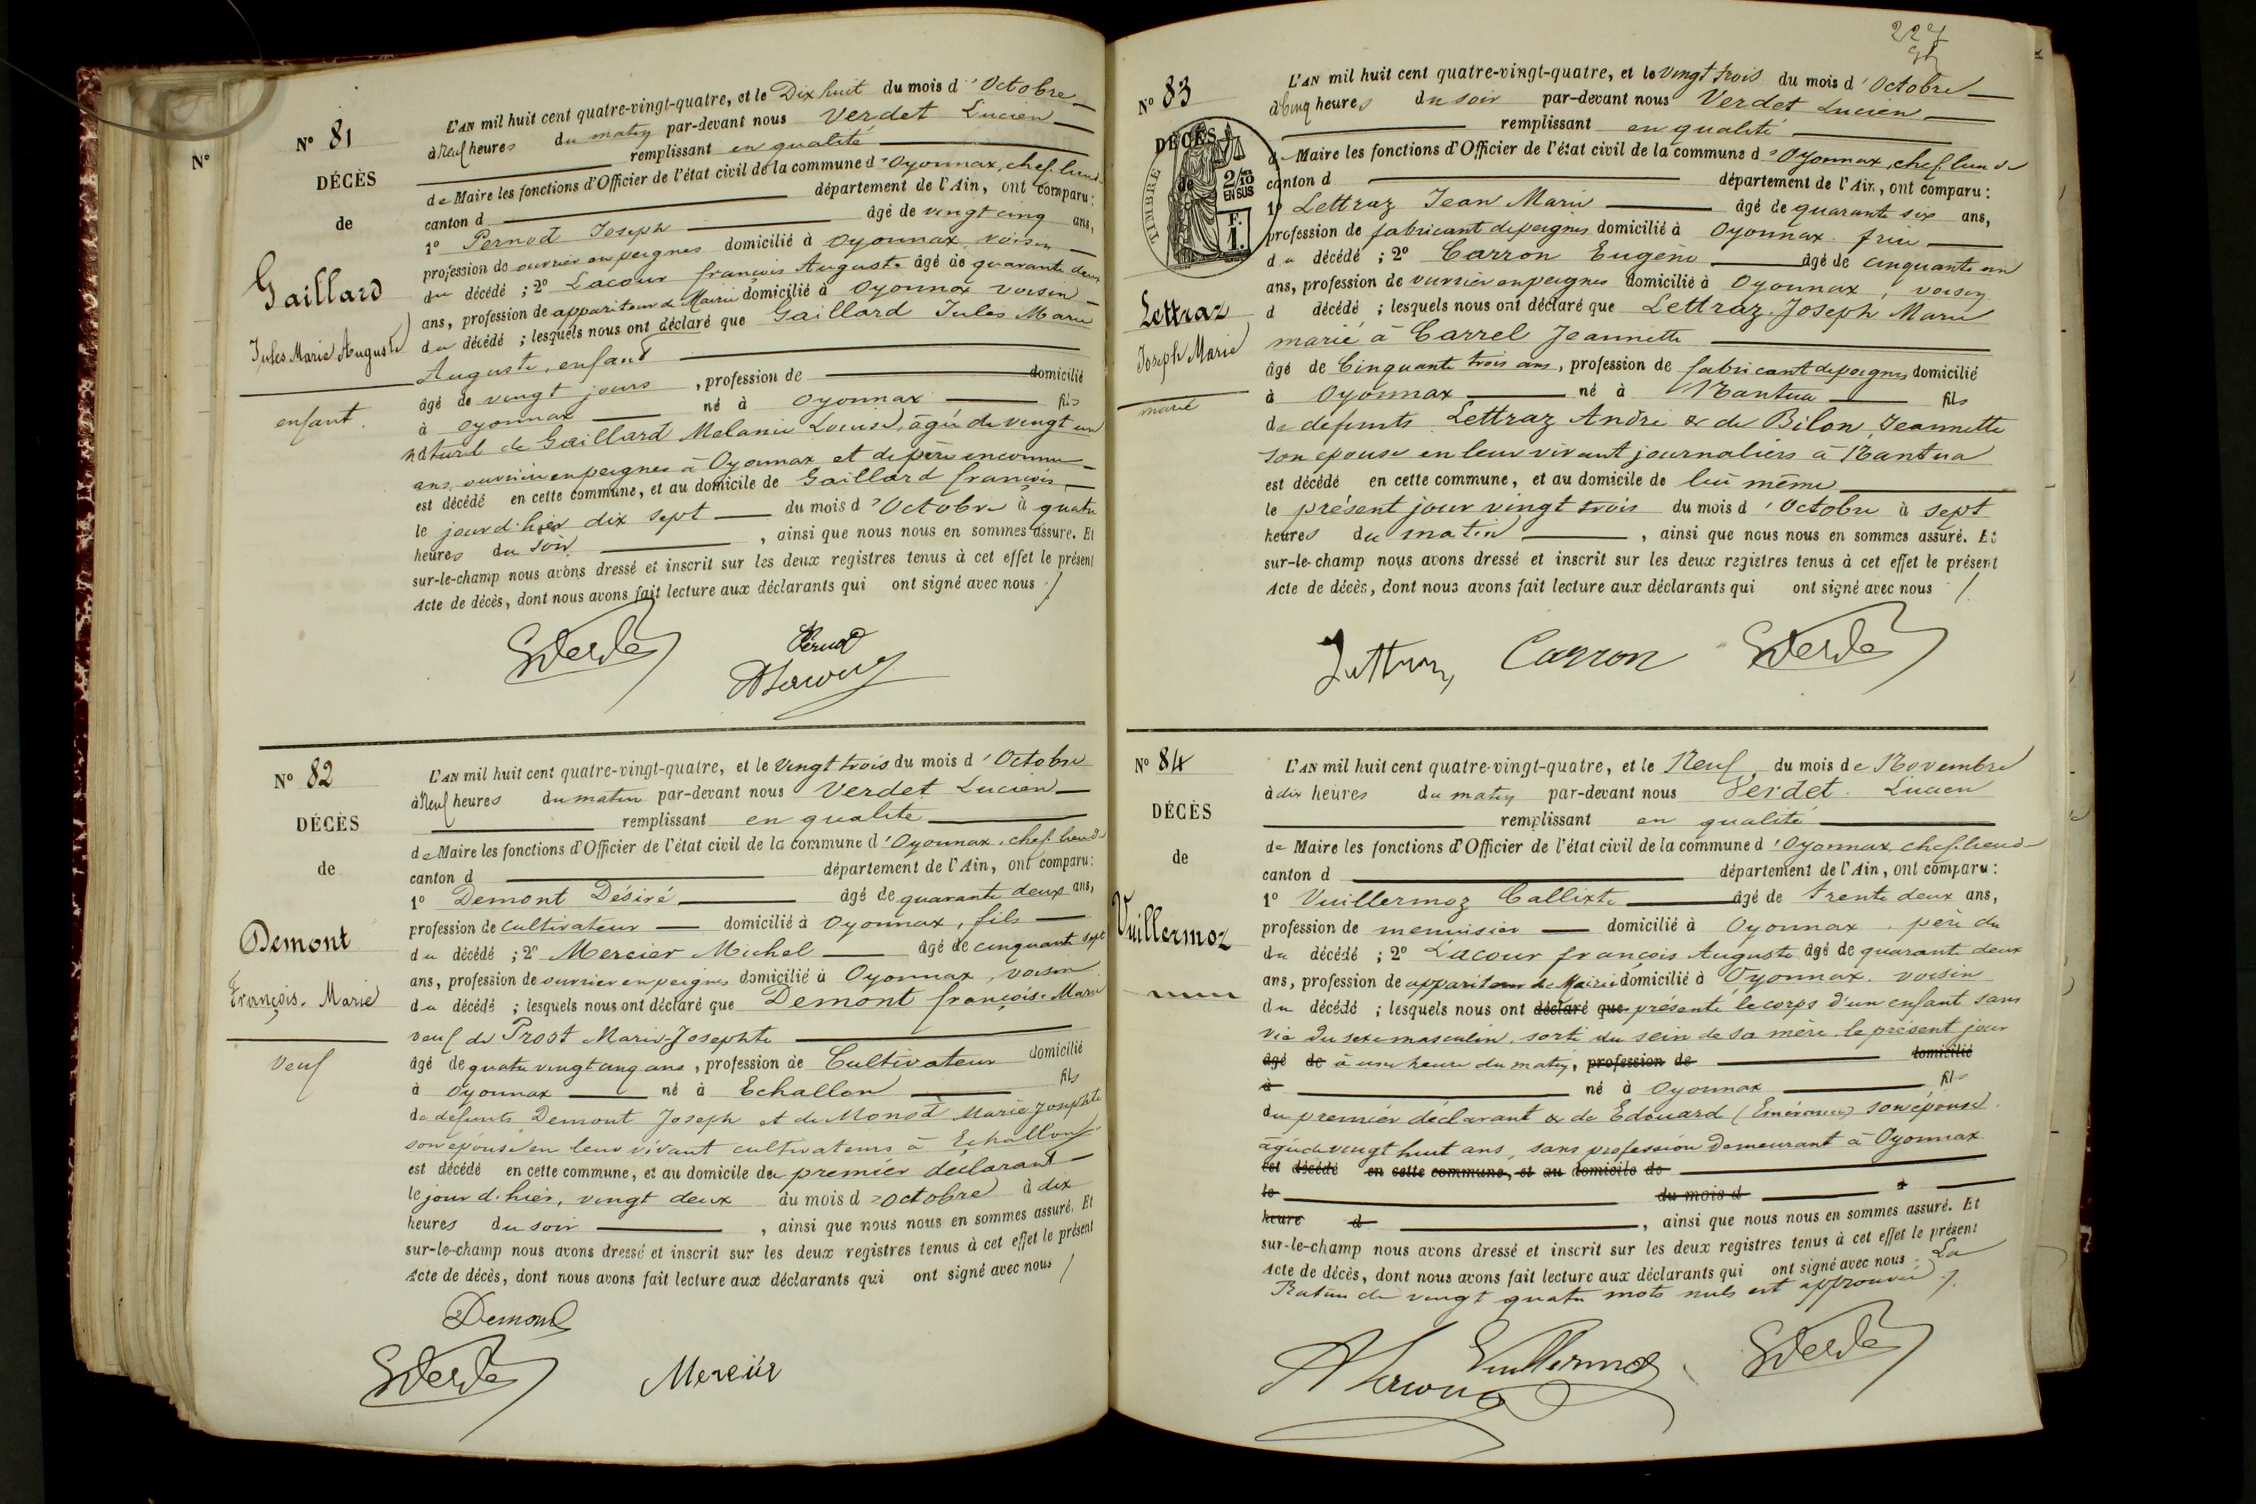 N°
N° 81
DÉCÈS
de
Gaillard
Jules Marie Auguste
enfant.
L'AN mil huit cent quatre-vingt-quatre, et le Dix huit du mois d'Octobre
à Neuf heures du matin par-devant nous Verdet Lucien
remplissant en qualité
de Maire les fonctions d'Officier de l'état civil de la commune d'Oyonnax, chef lieu de
canton d département de l'Ain, ont comparu:
1° Pernod Joseph âgé de vingt cinq ans,
profession de ouvrier en peignes domicilié à Oyonnax, voisin
du décédé ; 2° Lacour françois Auguste âgé de quarante deux
ans, profession de appariteur de Mairie domicilié à Oyonnax voisin
du décédé ; lesquels nous ont déclaré que Gaillard Jules Marie
Auguste, enfant
âgé de vingt jours , profession de domicilié
à oyonnax né à oyonnax fils
naturel de Gaillard Melanie Louise, âgée de vingt un
ans, ouvrière en peignes à Oyonnax et de père inconnu
est décédé en cette commune, et au domicile de Gaillard françois
le jour d'hier dix sept du mois d'Octobre à quatre
heures du soir , ainsi que nous nous en sommes assuré. Et
sur-le-champ nous avons dressé et inscrit sur les deux registres tenus à cet effet le présent
Acte de décès, dont nous avons fait lecture aux déclarants qui ont signé avec nous
N° 82
DÉCÈS
de
Demont
François-Marie
Veuf
L'AN mil huit cent quatre-vingt-quatre, et le vingt trois du mois d'Octobre
à Neuf heures du matin par-devant nous Verdet Lucien
remplissant en qualité
de Maire les fonctions d'Officier de l'état civil de la commune d'Oyonnax, chef lieu de
canton d département de l'Ain, ont comparu:
1° Demont Désiré âgé de quarante deux ans,
profession de Cultivateur domicilié à Oyonnax, fils
du décédé ; 2° Mercier Michel âgé de cinquante sept
ans, profession de ouvrier en peignes domicilié à Oyonnax, voisin
du décédé ; lesquels nous ont déclaré que Demont françois-Marie
veuf de Prost Marie-Josephte
âgé de quatre vingt cinq ans, profession de Cultivateur domicilié
à Oyonnax né à Echallon fils
de défunts Demont Joseph et de Monod Marie Josephte
son épouse en leur vivant cultivateurs à Echallon
est décédé en cette commune, et au domicile du premier déclarant
le jour d'hier, vingt deux du mois d'octobre à dix
heures du soir , ainsi que nous nous en sommes assuré. Et
sur-le-champ nous avons dressé et inscrit sur les deux registres tenus à cet effet le présent
Acte de décès, dont nous avons fait lecture aux déclarants qui ont signé avec nous
Demont
Verdet Mercier
227
N° 83
DÉCÈS
de
TIMBRE
2/10 EN SUS
F. 1.
Lettraz
Joseph Marie
marié
L'AN mil huit cent quatre-vingt-quatre, et le vingt trois du mois d'Octobre
à Cinq heures du soir par-devant nous Verdet Lucien
remplissant en qualité
de Maire les fonctions d'Officier de l'état civil de la commune d'Oyonnax, chef lieu de
canton d département de l'Ain, ont comparu:
1° Lettraz Jean Marie âgé de quarante six ans,
profession de fabricant de peignes domicilié à Oyonnax. frère
du décédé ; 2° Carron Eugène âgé de cinquante un
ans, profession de ouvrier en peignes domicilié à Oyonnax, voisin
d décédé ; lesquels nous ont déclaré que Lettraz Joseph Marie
marié à Carrel Jeannette
âgé de Cinquante trois ans, profession de fabricant de peignes domicilié
à Oyonnax né à Nantua fils
de défunts Lettraz André & de Bilon Jeannette
son épouse en leur vivant journaliers à Nantua
est décédé en cette commune, et au domicile de lui même
le présent jour vingt trois du mois d'Octobre à sept
heures du matin , ainsi que nous nous en sommes assuré. Et
sur-le-champ nous avons dressé et inscrit sur les deux registres tenus à cet effet le présent
Acte de décès, dont nous avons fait lecture aux déclarants qui ont signé avec nous
Lettraz Carron Verdet
N° 84
DÉCÈS
de
Vuillermoz
L'AN mil huit cent quatre-vingt-quatre, et le Neuf du mois de Novembre
à dix heures du matin par-devant nous Verdet Lucien
remplissant en qualité
de Maire les fonctions d'Officier de l'état civil de la commune d'Oyonnax, chef lieu de
canton d département de l'Ain, ont comparu:
1° Vuillermoz Callixte âgé de trente deux ans,
profession de menuisier domicilié à Oyonnax, père du
du décédé ; 2° Lacour françois Auguste âgé de quarante deux
ans, profession de appariteur de Mairie domicilié à Oyonnax. voisin
du décédé ; lesquels nous ont déclaré que présenté le corps d'un enfant sans
vie du sexe masculin, sorti du sein de sa mère le présent jour
âgé de à une heure du matin, profession de domicilié
à né à Oyonnax fils
du premier déclarant & de Edouard (Emérence) son épouse
âgée de vingt huit ans, sans profession demeurant à Oyonnax
est décédé en cette commune, et au domicile de
le du mois d à
heure d , ainsi que nous nous en sommes assuré. Et
sur-le-champ nous avons dressé et inscrit sur les deux registres tenus à cet effet le présent
Acte de décès, dont nous avons fait lecture aux déclarants qui ont signé avec nous. La
Rature de vingt quatre mots nuls est approuvée
Vuillermoz Verdet